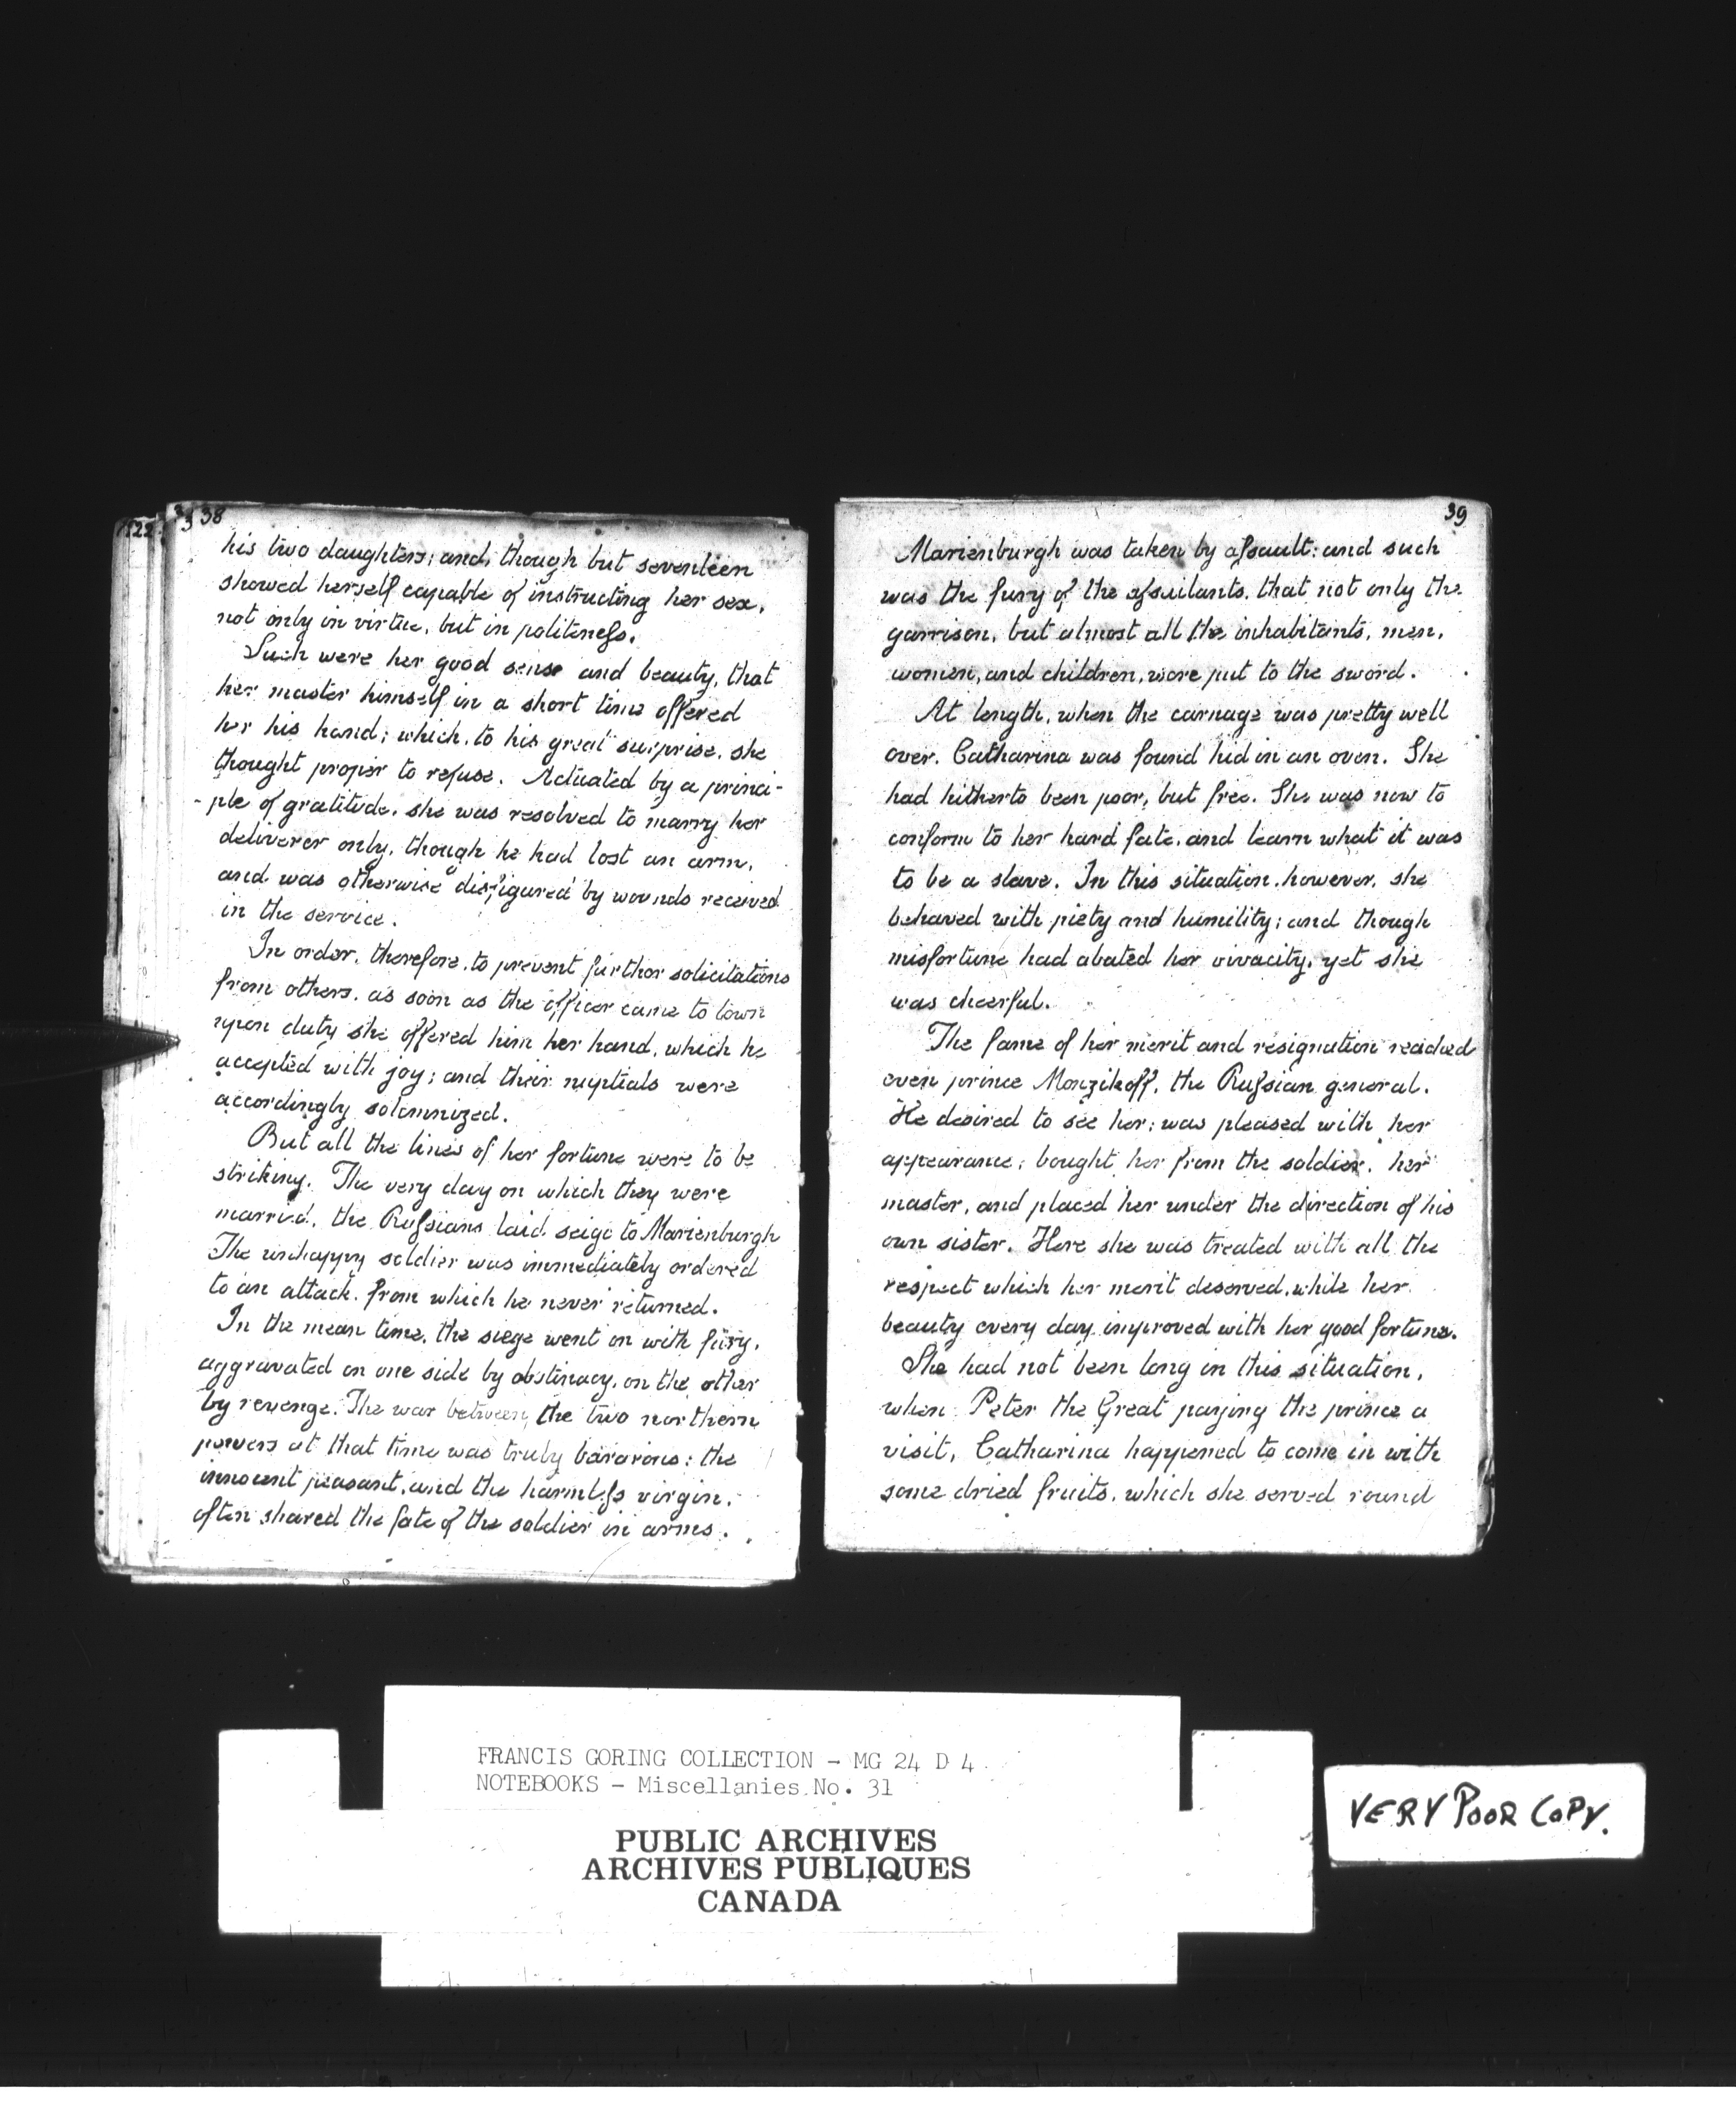 38
his two daughters; and, though but seventeen
showed herself capable of instructing her sex,
not only in virtue, but in politeneſs.
Such were her good sense and beauty, that
her master himself in a short time offered
her his hand; which, to his great surprise, she
thought proper to refuse. Actuated by a princi-
-ple of gratitude, she was resolved to marry her
deliverer only, though he had lost an arm,
and was otherwise disfigured by wounds received
in the service.
In order, therefore, to prevent further solicitations
from others, as soon as the officer came to town
upon duty she offered him her hand, which he
accepted with joy; and their nuptials were
accordingly solemnized.
But all the lines of her fortune were to be
striking. The very day on which they were
married, the Ruſsians laid seige to Marienburgh
The unhappy soldier was immediately ordered
to an attack, from which he never returned.
In the mean time, the siege went on with fury,
aggravated on one side by obstinacy, on the other
by revenge. The war between the two northern
powers at that time was truly bararous: the
innocent peasant, and the harmleſs virgin,
often shared the fate of the soldier in arms.
39
Marienburgh was taken by aſsault: and such
was the fury of the aſsailants, that not only the
garrison, but almost all the inhabitants, men,
women, and children, were put to the sword.
At length, when the carnage was pretty well
over, Catharina was found hid in an oven. She
had hitherto been poor, but free. She was now to
conform to her hard fate, and learn what it was
to be a slave. In this situation, however, she
behaved with piety and humility; and though
misfortune had abated her vivacity, yet she
was cheerful.
The fame of her merit and resignation reached
even prince Menzikoff, the Ruſsian general.
He desired to see her; was pleased with her
appearance; bought her from the soldier, her
master, and placed her under the direction of his
own sister. Here she was treated with all the
respect which her merit deserved, while her
beauty every day improved with her good fortune.
She had not been long in this situation,
when Peter the Great paying the prince a
visit, Catharina happened to come in with
some dried fruits, which she served round
FRANCIS GORING COLLECTION - MG 24 D 4
NOTEBOOKS - Miscellanies No. 31
PUBLIC ARCHIVES
ARCHIVES PUBLIQUES
CANADA
VERY POOR COPY.